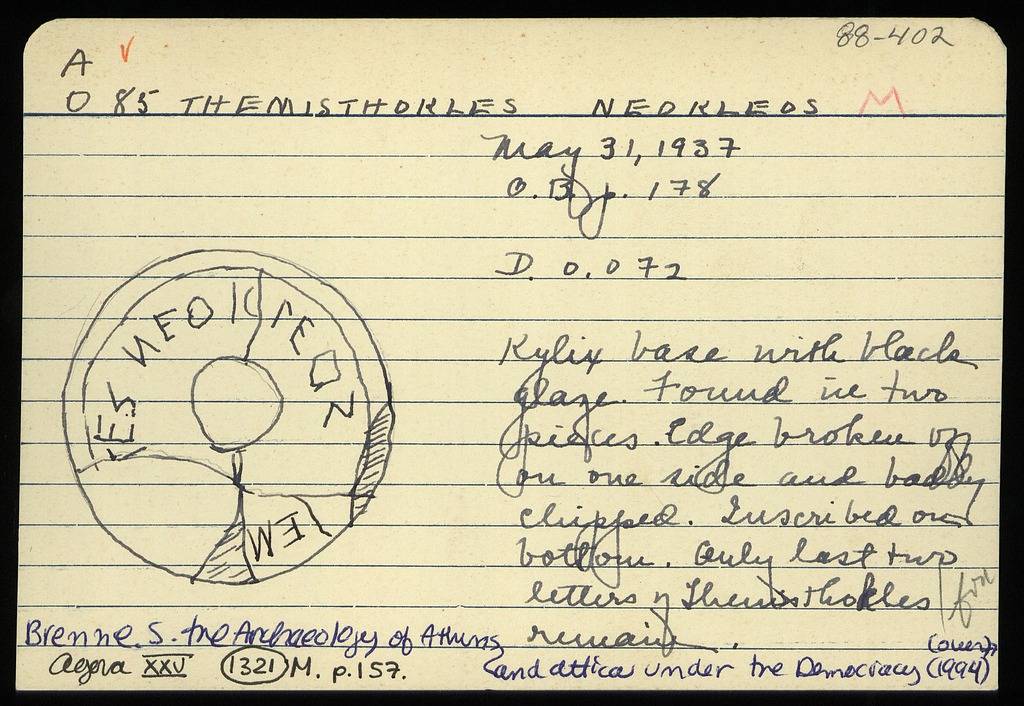 88-402
A √
O 85 THEMISTHOKLES NEOKLEOS M
May 31, 1937
O.B. p. 178
D. 0.072
Kylix base with black
glaze. Found in two
pieces. Edge broken off
on one side and badly
chipped. Inscribed on
bottom. Only last two
letters of Themisthokles
remain.
Brenne. S. the Archaeology of Athens
and attica under the Democracy (1994)
(over)
Agora XXV 1321 M. p.157.